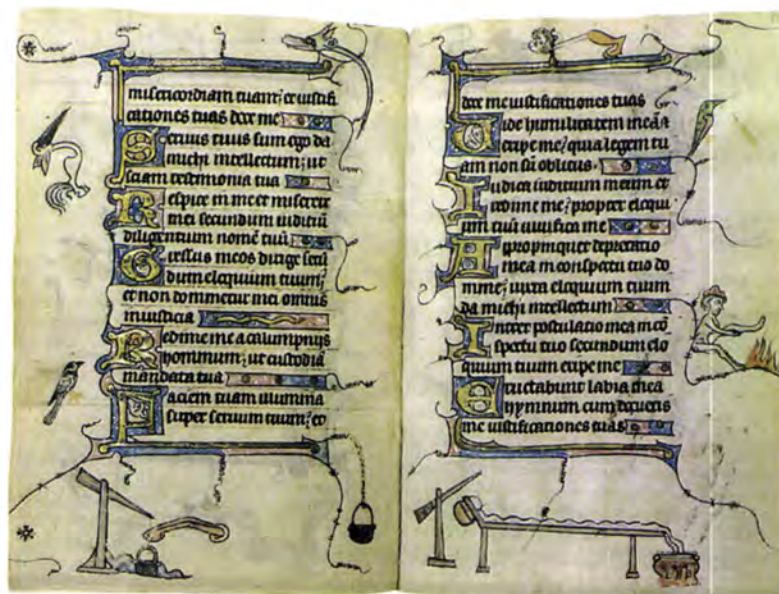 misericordiam tuam; et iustifi
cationes tuas doce me
Seruus tuus sum ego da
michi intellectum; ut
sciam testimonia tua
Respice in me et miserere
mei secundum iuditiū
diligentium nomē tuū
Gressus meos dirige secū
dum eloquium tuum;
et non dominetur mei omnis
iniusticia
Redime me a calumpnijs
hominum; ut custodiā
mandata tua
Faciem tuam illumina
super seruum tuum; et
doce me iustificationes tuas
Uide humilitatem meā &
eripe me; quia legem tu
am non sū oblitus.
Iudica iuditium meum et
redime me; propter eloqui
um tuū uiuifica me
Appropinquet deprecatio
mea in conspectu tuo do
mine; iuxta eloquium tuum
da michi intellectum
Intret postulatio mea in cō
spectu tuo secundum elo
quium tuum eripe me
Eructabunt labia mea
hymnum cum docueris
me iustificationes tuas